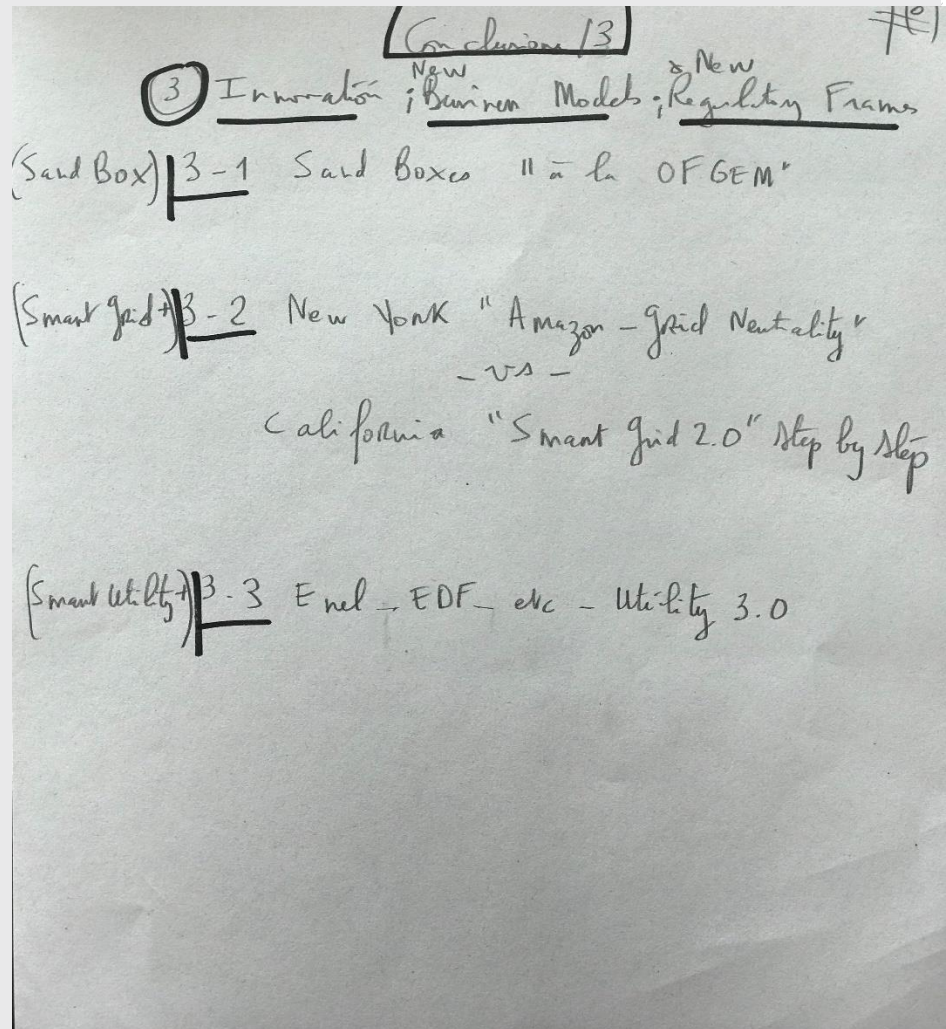 Conclusion /3
#6
New & New
③ Innovation ; Business Models ; Regulatory Frames
(Sand Box) 3-1 Sand Boxes "à la OFGEM"
(Smart grid+) 3-2 New York "Amazon - grid Neutrality"
- vs -
California "Smart grid 2.0" step by step
(Smart Utility+) 3.3 Enel - EDF - etc - Utility 3.0